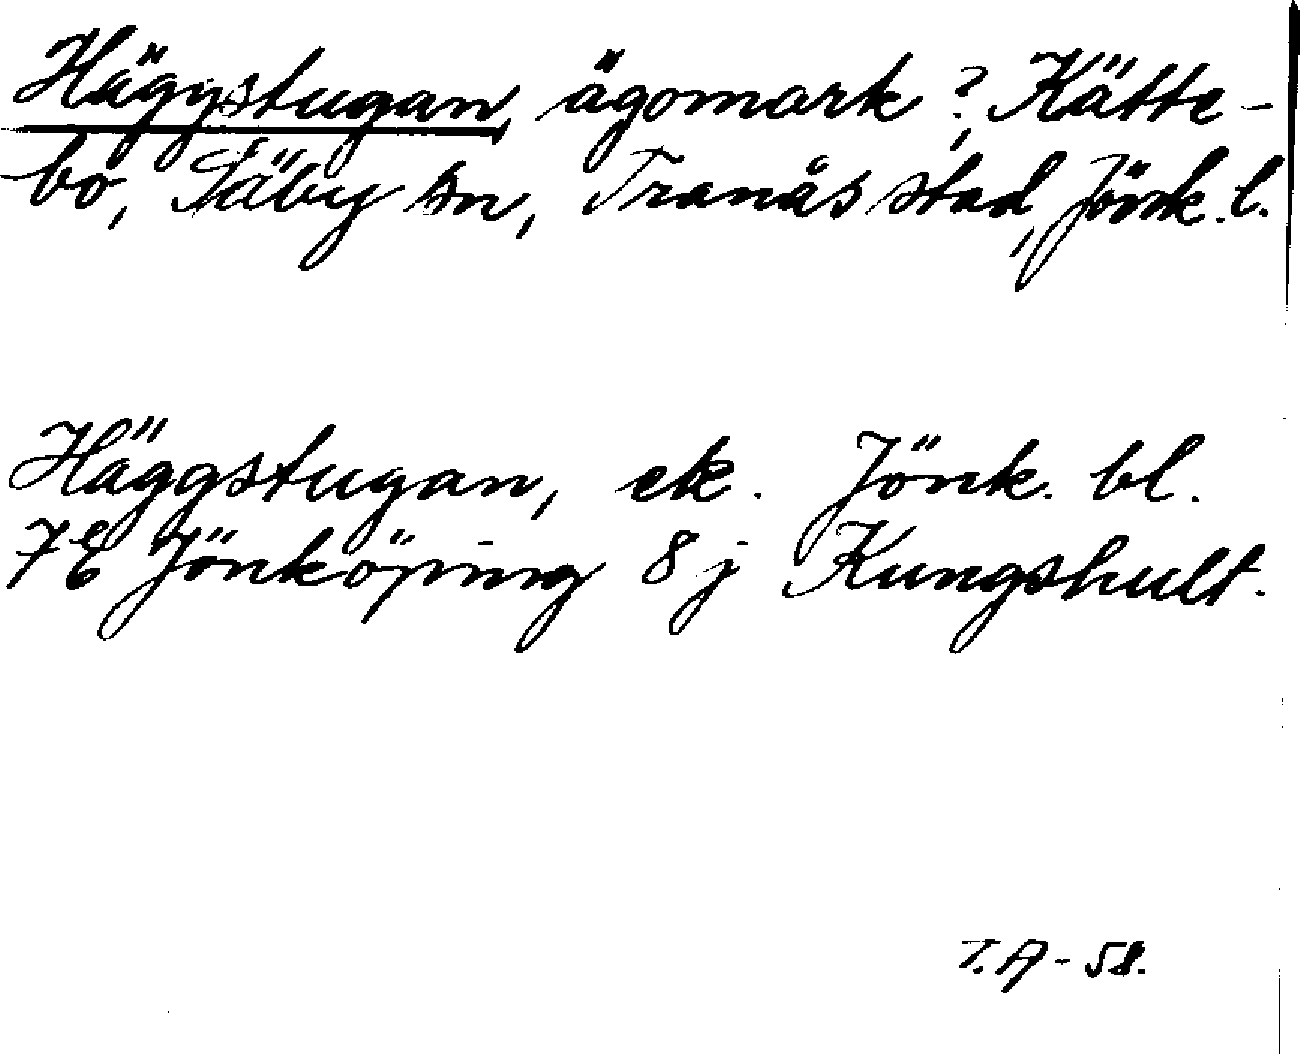 Häggstugan, ägomark?, Kätte-
bo, Säby sn, Tranås stad, Jönk. l.
Häggstugan, ek. Jönk. bl.
7E Jönköping 8 j Kungshult.
T. A - 58.